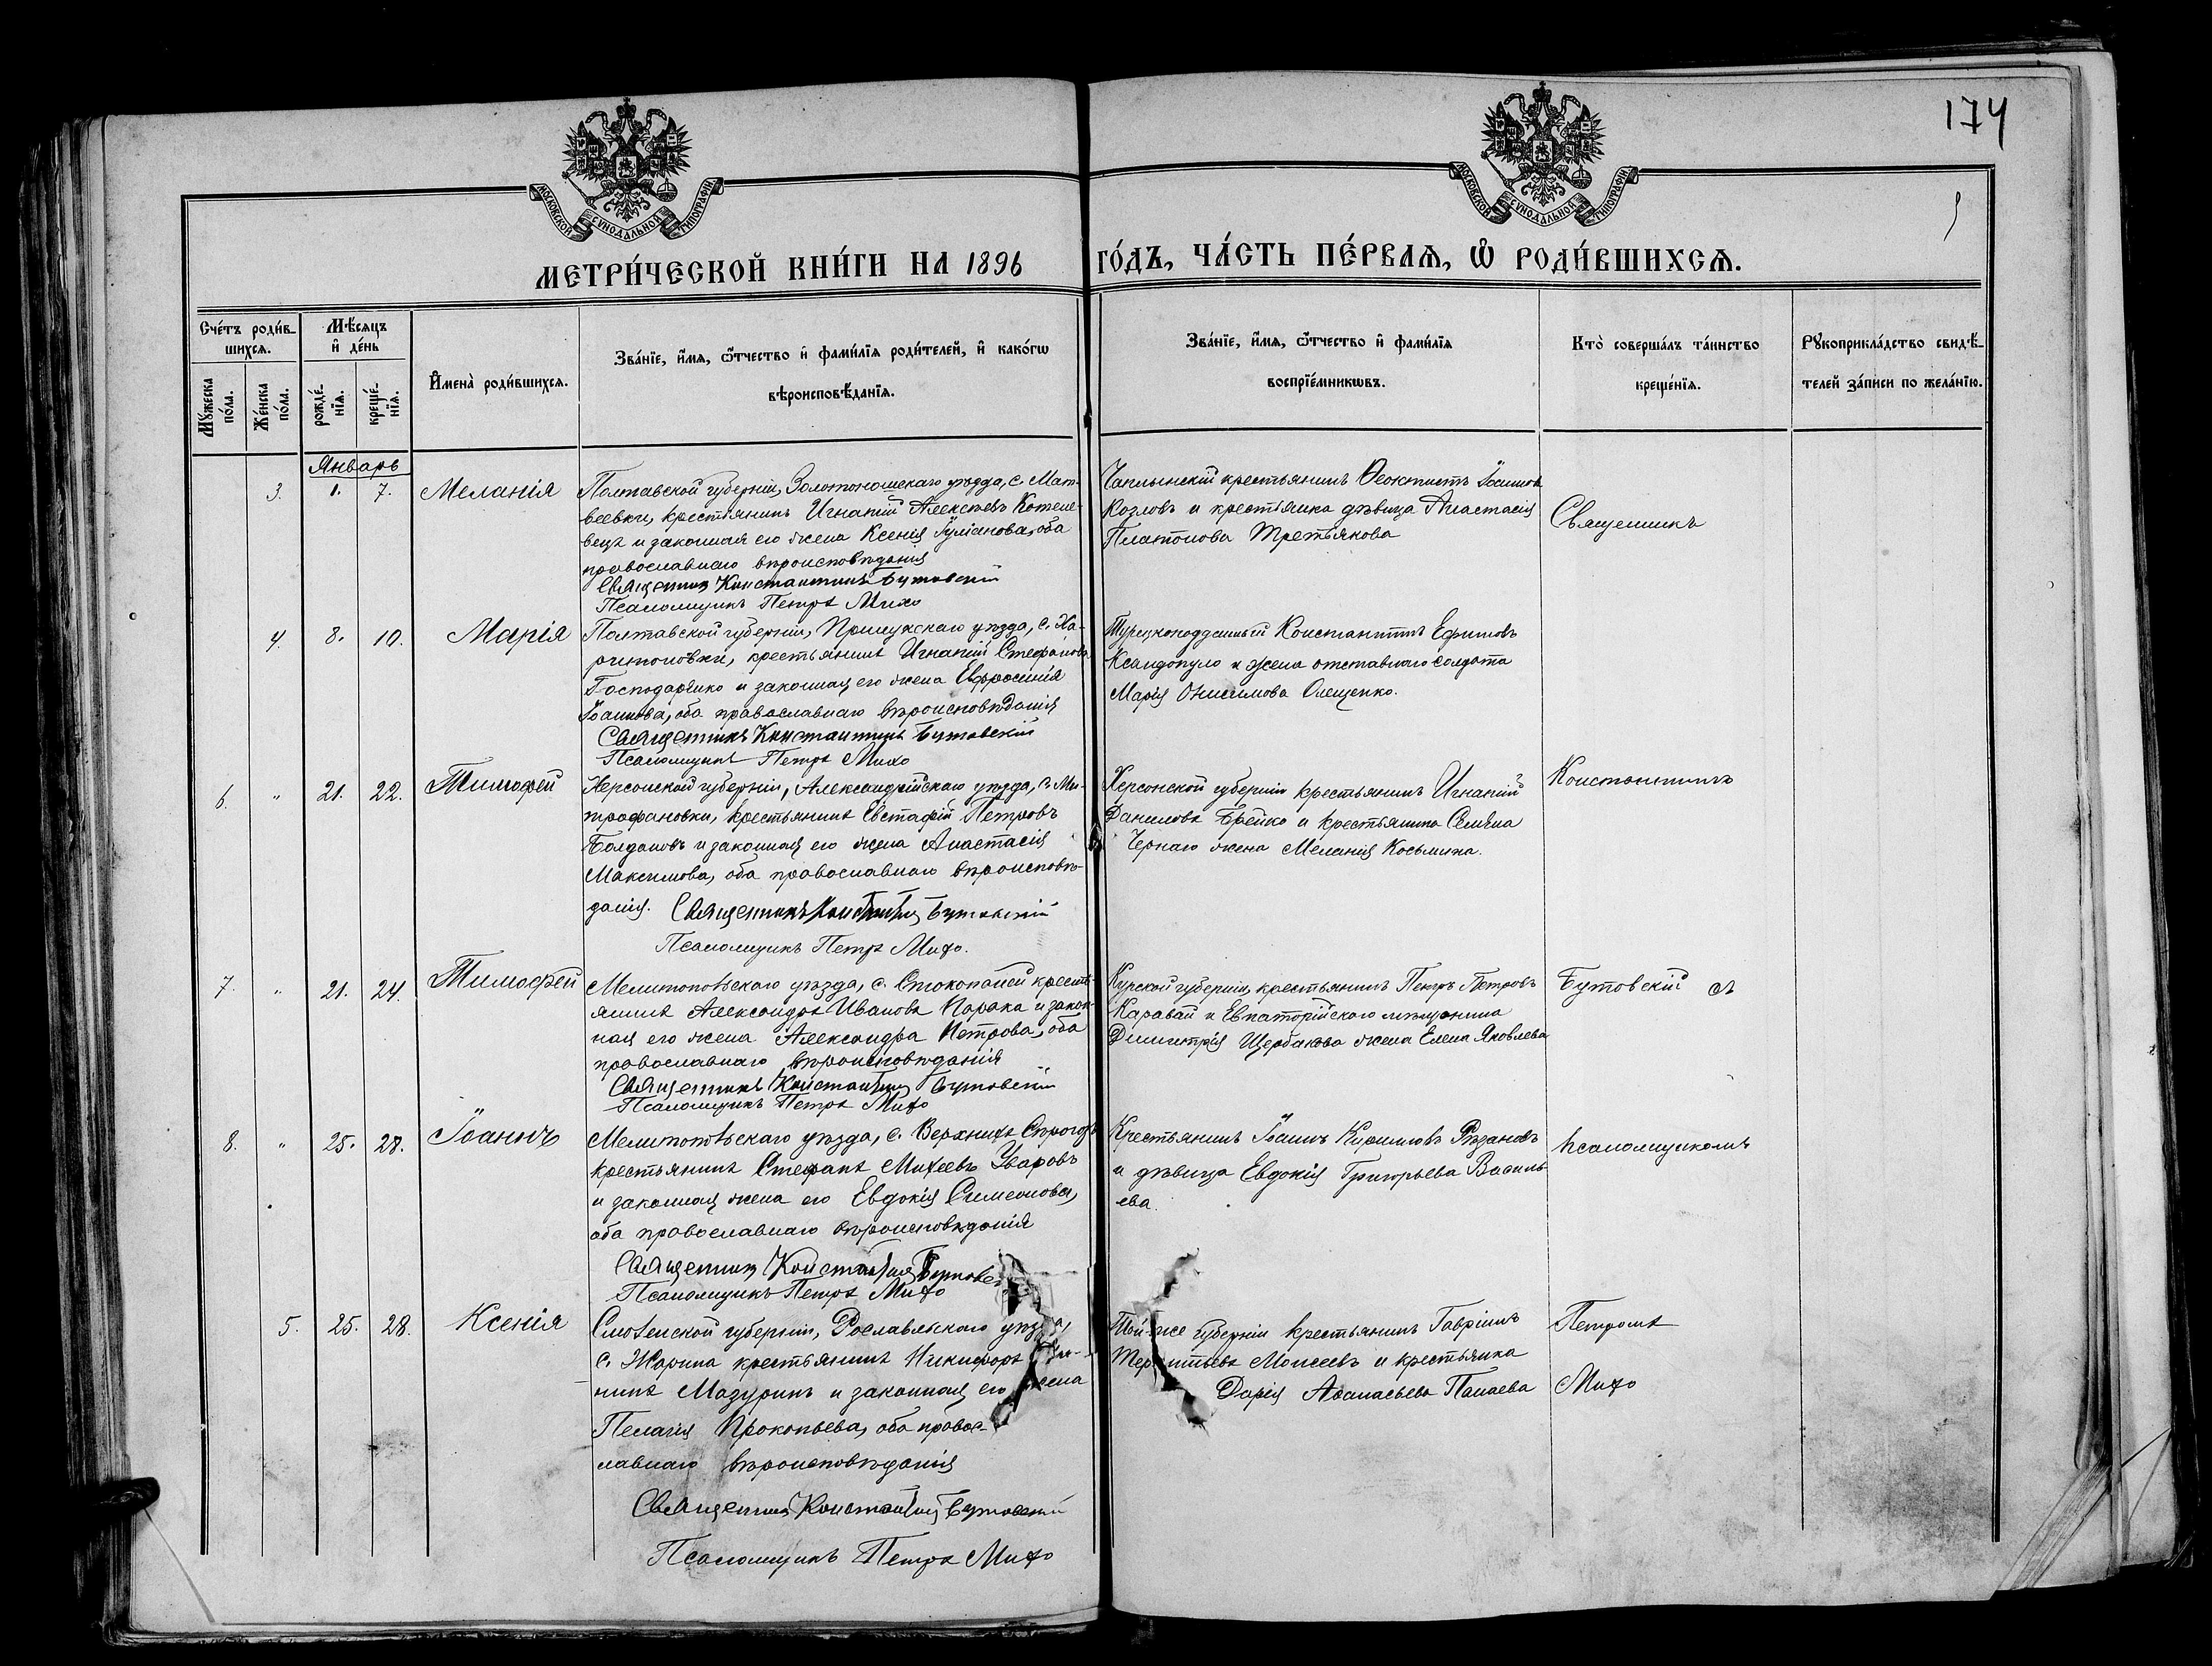 174
МОСКОВСКОЙ СѴНОДАЛЬНОЙ ТИПОГРАФІИ
МОСКОВСКОЙ СѴНОДАЛЬНОЙ ТИПОГРАФІИ
МЕТРИ́ЧЕСКОЙ КНИ́ГИ НА 1896 ГО́ДЪ, ЧА́СТЬ ПЕ́РВАѦ, Ѡ҆ РОДИ́ВШИХСѦ.
Сче́тъ роди́в-
шихсѧ.
Мꙋ́жеска по́ла.
Же́нска по́ла.
Мѣ́сѧцъ
и҆ де́нь
рожде́-
нїѧ.
креще́-
нїѧ.
И҆мена̀ роди́вшихсѧ.
Зва́нїе, и҆́мѧ, ѻ҆́тчество и҆ фами́лїѧ роди́телей, и҆ како́гѡ
вѣроисповѣ́данїѧ.
Зва́нїе, и҆́мѧ, ѻ҆́тчество и҆ фами́лїѧ
воспрїе́мникѡвъ.
Кто̀ соверша́лъ та́инство
креще́нїѧ.
Рꙋкоприкла́дство свидѣ́-
телей за́писи по жела́нїю.
Январь
3. 1. 7. Меланія
Полтавской губерніи, Золотоношскаго уѣзда, с. Мат-
веевки, крестьянинъ Игнатій Алексѣевъ Котеле-
вецъ и законная его жена Ксенія Гуліанова, оба
православнаго вѣроисповѣданія
Священникъ Константинъ Бутовскій
Псаломщикъ Петръ Михо
Чаплынскій крестьянинъ Ѳеоктистъ Іоанновъ
Козловъ и крестьянка дѣвица Анастасія
Платонова Третьякова
Священникъ
4. 8. 10. Марія
Полтавской губерніи, Прилукскаго уѣзда, с. Ха-
ритоновки, крестьянинъ Игнатій Стефановъ
Господаренко и законная его жена Евфросинія
Іоаннова, оба православнаго вѣроисповѣданія
Священникъ Константинъ Бутовскій
Псаломщикъ Петръ Михо
Турецкоподданный Константинъ Ефимовъ
Ксандопуло и жена отставнаго солдата
Марія Онисимова Олещенко.
6. " 21. 22. Тимофей
Херсонской губерніи, Александрійскаго уѣзда, с. Ми-
трофановки, крестьянинъ Евстафій Петровъ
Болдановъ и законная его жена Анастасія
Максимова, оба православнаго вѣроисповѣ-
данія. Священникъ Константинъ Бутовскій
Псаломщикъ Петръ Михо.
Херсонской губерніи крестьянинъ Игнатій
Даниловъ Брейко и крестьянина Семена
Чернаго жена Меланія Косьмина.
Константинъ
7. " 21. 24. Тимофей
Мелитопольскаго уѣзда, с. Стокопаней кресть-
янинъ Александръ Ивановъ Парака и закон-
ная его жена Александра Петрова, оба
православнаго вѣроисповѣданія
Священникъ Константинъ Бутовскій
Псаломщикъ Петръ Михо
Курской губерніи крестьянинъ Петръ Петровъ
Каравай и Евпаторійскаго мѣщанина
Димитрія Щербакова жена Елена Яковлева
Бутовскій съ
8. " 25. 28. Іоаннъ
Мелитопольскаго уѣзда, с. Верхнихъ Сѣрогозъ
крестьянинъ Стефанъ Михеевъ Уваровъ
и законная жена его Евдокія Симеонова,
оба православнаго вѣроисповѣданія
Священникъ Константинъ Бутовск
Псаломщикъ Петръ Михо
Крестьянинъ Іоаннъ Кириловъ Рѣзановъ
и дѣвица Евдокія Григорьева Василь-
ева.
псаломщикомъ
5. 25. 28. Ксенія
Смоленской губерніи, Рославльскаго уѣзда,
с. Жарына крестьянинъ Никифоръ
нинъ Мазуринъ и законная его жена
Пелагія Прокопьева, оба правос-
лавнаго вѣроисповѣданія
Священникъ Константинъ Бутовскій
Псаломщикъ Петръ Михо
Той-же губерніи крестьянинъ Гавріилъ
Терентьевъ Моисеевъ и крестьянка
Дарія Аѳанасьева Панаева
Петромъ
Михо